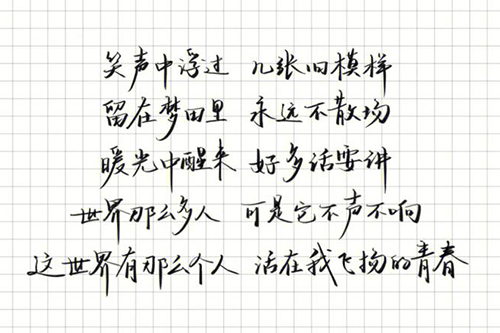 笑声中浮过 几张旧模样
留在梦田里 永远不散场
暖光中醒来 好多话要讲
世界那么多人 可是它不声不响
这世界有那么个人 活在我飞扬的青春